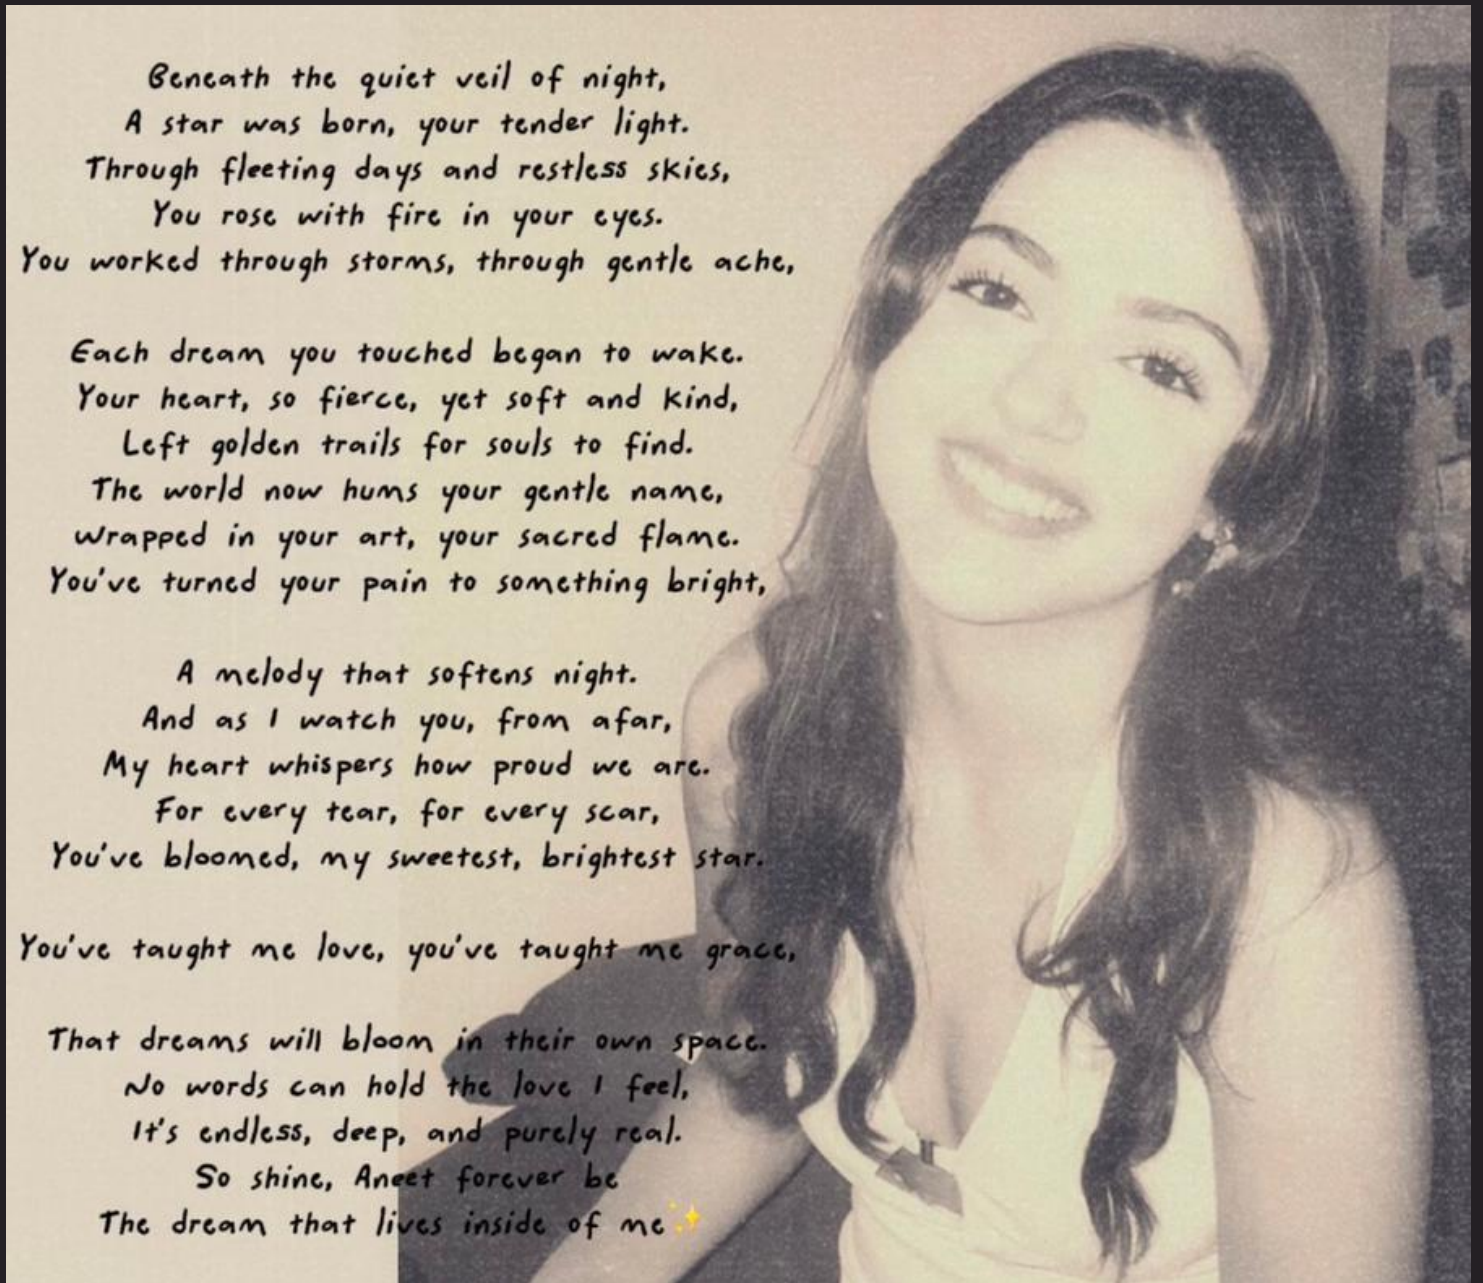 Beneath the quiet veil of night,
A star was born, your tender light.
Through fleeting days and restless skies,
You rose with fire in your eyes.
You worked through storms, through gentle ache,
Each dream you touched began to wake.
Your heart, so fierce, yet soft and kind,
Left golden trails for souls to find.
The world now hums your gentle name,
wrapped in your art, your sacred flame.
You've turned your pain to something bright,
A melody that softens night.
And as I watch you, from afar,
My heart whispers how proud we are.
For every tear, for every scar,
You've bloomed, my sweetest, brightest star.
You've taught me love, you've taught me grace,
That dreams will bloom in their own space.
No words can hold the love I feel,
It's endless, deep, and purely real.
So shine, Aneet forever be
The dream that lives inside of me✨